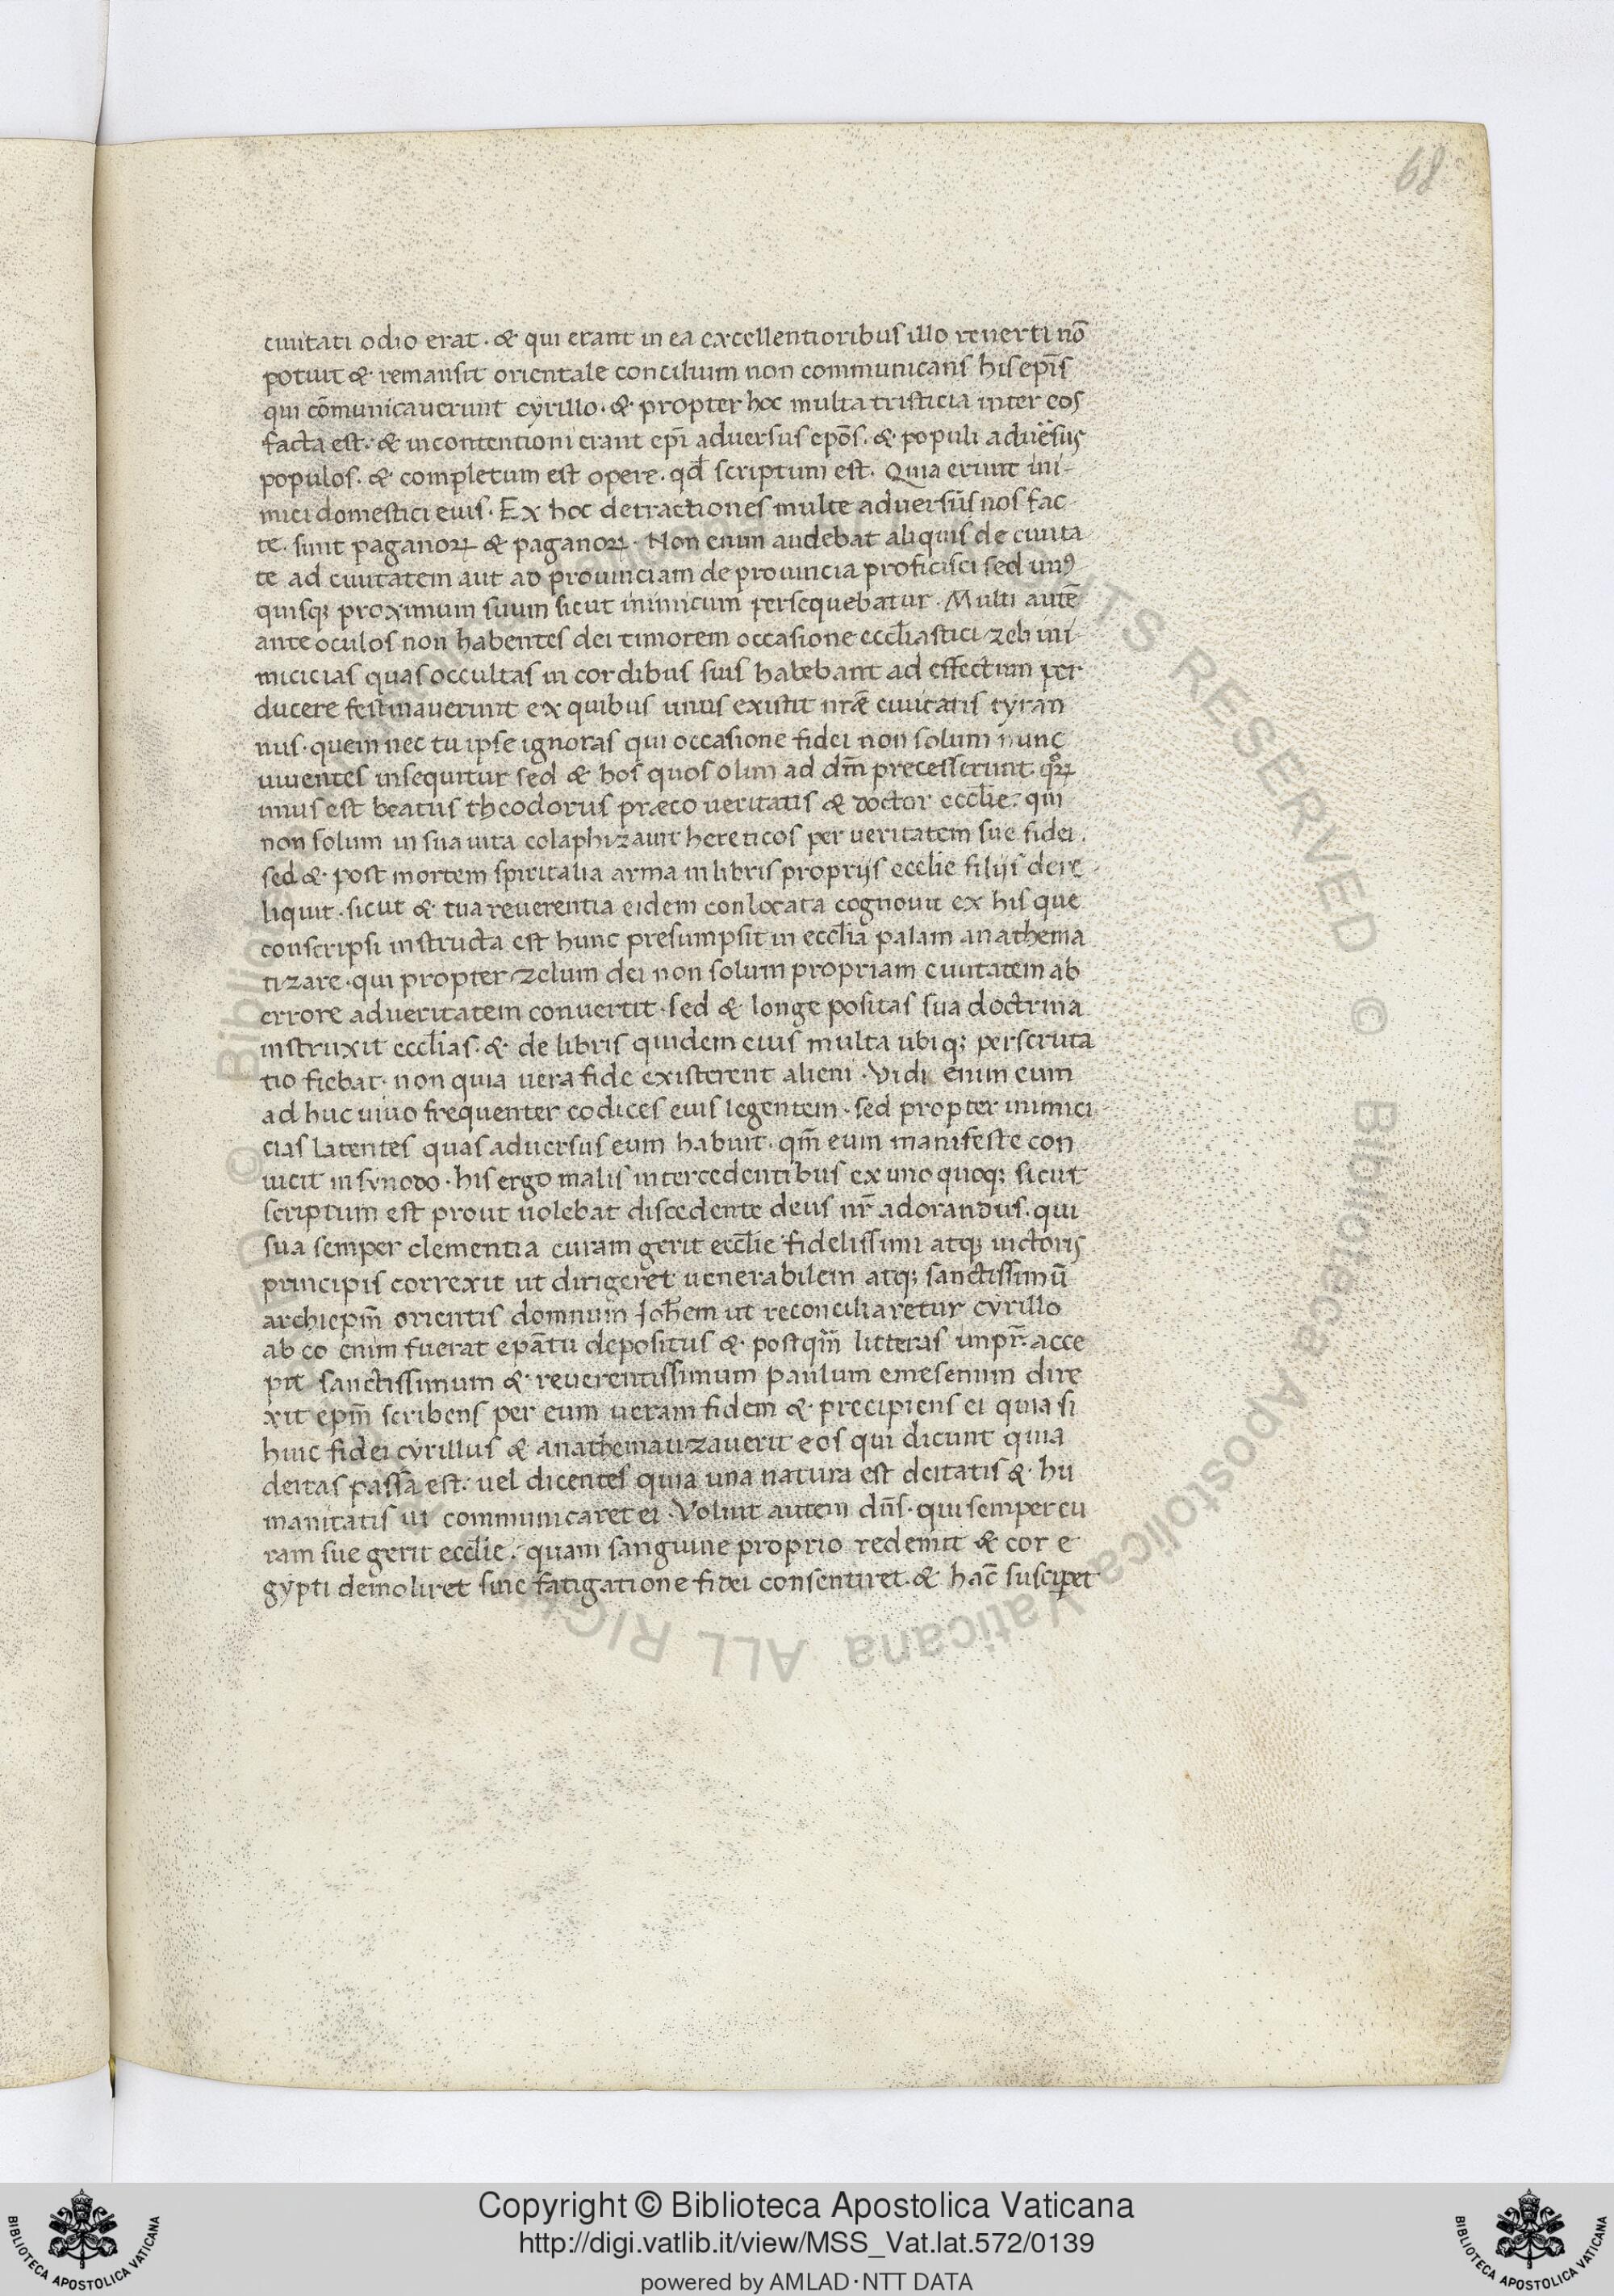 68
ciuitati odio erat · & qui erant in ea excellentioribus illo reuerti nō
potuit & remansit orientale concilium non communicans his ep̄is
qui cōmunicauerunt cyrillo · & propter hoc multa tristicia inter eos
facta est · & in contentioni erant ep̄i aduersus ep̄os · & populi aduersus
populos · & completum est opere · qd̄ scriptum est · Quia erunt ini-
mici domestici eius · Ex hoc detractiones multe aduersus nos fac
te · sunt paganoꝝ & paganoꝝ · Non enim audebat aliquis de ciuita
te ad ciuitatem aut ad prouinciam de prouincia proficisci sed unꝰ
quisq; proximum suum sicut inimicum persequebatur · Multi autē
ante oculos non habentes dei timorem occasione eccl̄iastici zeli ini-
micicias quas occultas in cordibus suis habebant ad effectum per
ducere festinauerunt ex quibus unus existit nr̄æ ciuitatis tyran
nus · quem nec tu ipse ignoras qui occasione fidei non solum nunc
uiuentes insequitur sed & hos quos olim ad dm̄ precesserunt · quoꝝ
unus est beatus theodorus præco ueritatis & doctor eccl̄ie · qui
non solum in sua uita colaphizauit hereticos per ueritatem sue fidei ·
sed & post mortem spiritalia arma in libris propriis eccl̄ie filiis dere
liquit · sicut & tua reuerentia eidem conlocata cognouit ex his que
conscripsi instructa est hunc presumpsit in eccl̄ia palam anathema
tizare · qui propter zelum dei non solum propriam ciuitatem ab
errore ad ueritatem conuertit · sed & longe positas sua doctrina
instruxit eccl̄ias · & de libris quidem eius multa ubiq; perscruta
tio fiebat · non quia uera fide existerent alieni · Vidi enim eum
ad huc uiuo frequenter codices eius legentem · sed propter inimici
cias latentes quas aduersus eum habuit · qm̄ eum manifeste con
uicit in synodo · his ergo malis intercedentibus ex uno quoq; sicut
scriptum est prout uolebat discedente deus nr̄ adorandus · qui
sua semper clementia curam gerit eccl̄ie fidelissimi atq; uictoris
principis correxit ut dirigeret uenerabilem atq; sanctissimū
archiepm̄ orientis domnum Joh̄em ut reconciliaretur cyrillo
ab eo enim fuerat ep̄atu depositus & postqm̄ litteras unpr̄ · acce
pit sanctissimum & reuerentissimum paulum emesenum dire
xit epm̄ scribens per eum ueram fidem & precipiens ei quia si
huic fidei cyrillus & anathematizauerit eos qui dicunt quia
deitas passa est · uel dicentes quia una natura est deitatis & hu
manitatis ut communicaret ei · Voluit autem dn̄s · qui semper cu
ram sue gerit eccl̄ie · quam sanguine proprio redemit & cor e
gypti demoliret sine fatigatione fidei consentiret · & hac̄ susciperet
Copyright © Biblioteca Apostolica Vaticana
http://digi.vatlib.it/view/MSS_Vat.lat.572/0139
powered by AMLAD·NTT DATA
BIBLIOTECA APOSTOLICA VATICANA
BIBLIOTECA APOSTOLICA VATICANA
© Biblioteca Apostolica Vaticana ALL RIGHTS RESERVED